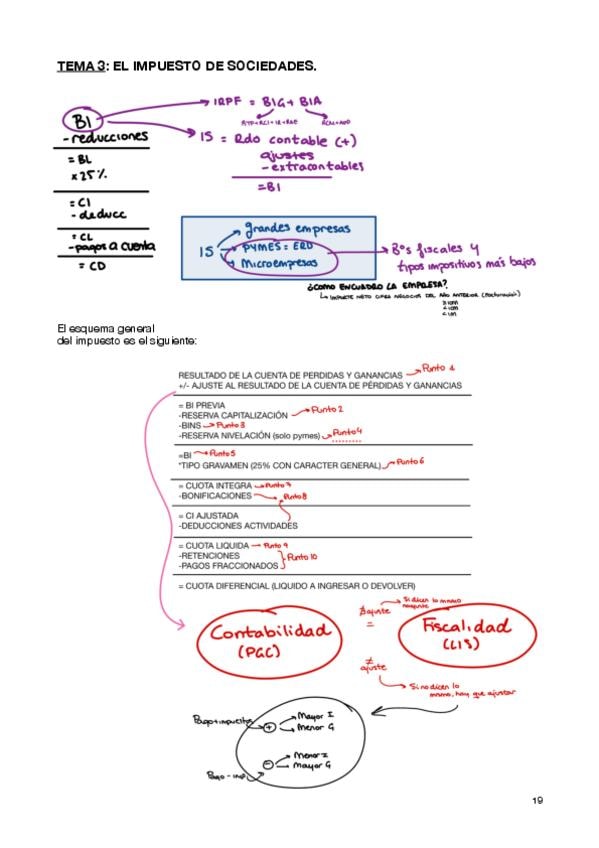 TEMA 3: EL IMPUESTO DE SOCIEDADES.
BI
-reducciones
= BL
x 25%
= CI
- deducc
= CL
-pagos a cuenta
= CD
IRPF = BIG + BIA
IS = Rdo contable (+)
ajustes
- extracontables
= BI
IS
grandes empresas
PYMES = ERD
Microempresas
Bºs fiscales y
tipos impositivos más bajos
¿COMO ENCUADRO LA EMPRESA?
IMPORTE NETO CIFRA NEGOCIOS DEL AÑO ANTERIOR (Facturación)
El esquema general
del impuesto es el siguiente:
RESULTADO DE LA CUENTA DE PERDIDAS Y GANANCIAS Punto 1
+/- AJUSTE AL RESULTADO DE LA CUENTA DE PÉRDIDAS Y GANANCIAS
= BI PREVIA
-RESERVA CAPITALIZACIÓN Punto 2
-BINS Punto 3
-RESERVA NIVELACIÓN (solo pymes) Punto 4
=BI Punto 5
*TIPO GRAVAMEN (25% CON CARACTER GENERAL) Punto 6
= CUOTA INTEGRA Punto 7
-BONIFICACIONES Punto 8
= CI AJUSTADA
-DEDUCCIONES ACTIVIDADES
= CUOTA LIQUIDA Punto 9
-RETENCIONES
-PAGOS FRACCIONADOS Punto 10
= CUOTA DIFERENCIAL (LIQUIDO A INGRESAR O DEVOLVER)
Contabilidad
(PGC)
∄ajuste
=
Si dicen lo mismo
no ajuste
Fiscalidad
(LIS)
≠
ajuste
Si no dicen lo
mismo, hay que ajustar
Pago + impuestos
+
Mayor I
Menor G
Pago - imp
-
Menor I
Mayor G
19